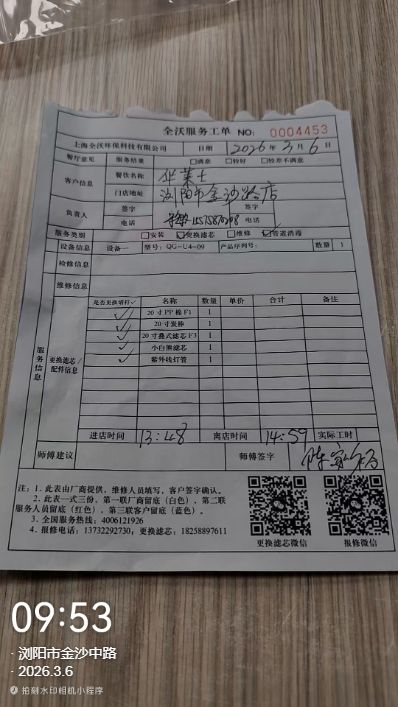 全沃服务工单 NO: 0004453
上海全沃环保科技有限公司 日期 2026年3月6日
餐厅意见 服务结果 □满意 □较好 □较差不满意
客户信息 餐饮名称 华莱士
门店地址 浏阳市金沙路店
负责人 签字 签字
电话 电话
服务类别 □安装 ☑更换滤芯 □维修 ☑管道消毒
设备信息 设备一 型号: QG-U4-09 产品序列号: 数量 1
检修信息
维修信息
服务信息
更换滤芯/配件信息
是否更换请打✓ 名称 数量 单价 合计 备注
✓ 20寸PP棉F1 1
✓ 20寸炭棒 1
✓ 20寸叠式滤芯F3 1
✓ 小白熊滤芯 1
✓ 紫外线灯管 1
进店时间 13:48 离店时间 14:59 实际工时
师傅建议 师傅签字
注: 1. 此表由厂商提供，维修人员填写，客户签字确认。
2. 此表一式三份，第一联厂商留底（白色），第二联
服务人员留底（红色），第三联客户留底（蓝色）。
3. 全国服务热线: 4006121926
4. 维修电话: 13732292730; 更换滤芯: 18258897611
更换滤芯微信 报修微信
09:53
· 浏阳市金沙中路
· 2026.3.6
拍刻水印相机小程序